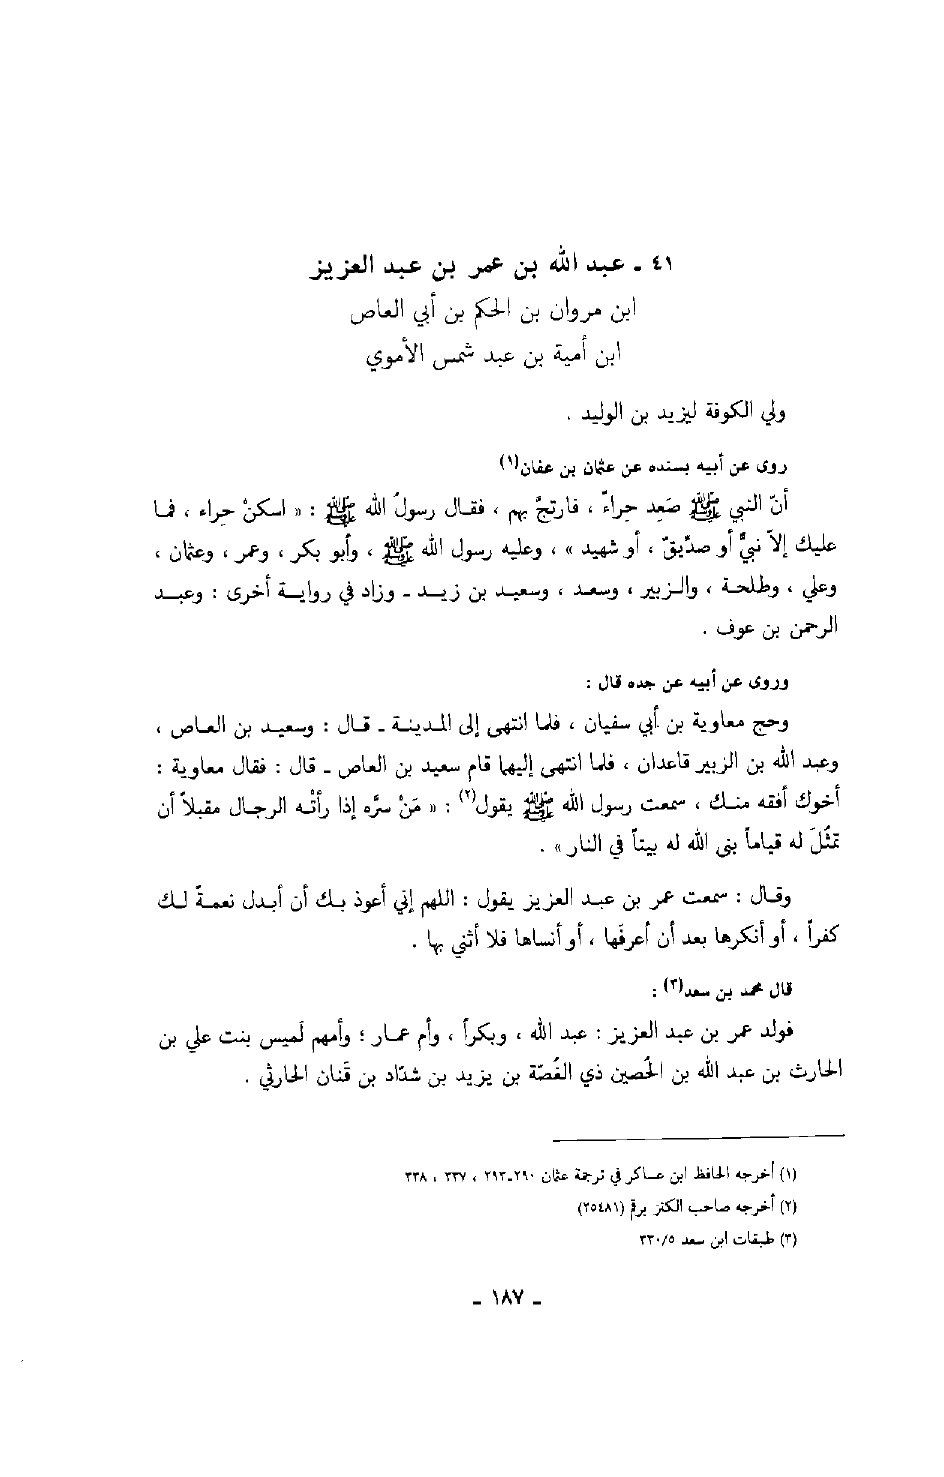 ٤١ ـ عبد الله بن عمر بن عبد العزيز
ابن مروان بن الحكم بن أبي العاص
ابن أمية بن عبد شمس الأموي
ولي الكوفة ليزيد بن الوليد .
روى عن أبيه بسنده عن عثمان بن عفان(١)
أنّ النبي ﷺ صَعِد حِراءً ، فارتجَّ بهم ، فقال رسولُ الله ﷺ : « اسكنْ حِراء ، فما
عليك إلاّ نبيٌّ أو صدّيقٌ ، أو شهيد » ، وعليه رسول الله ﷺ ، وأبو بكر ، وعمر ، وعثمان ،
وعلي ، وطلحة ، والزبير ، وسعد ، وسعيد بن زيد ـ وزاد في رواية أخرى : وعبد
الرحمن بن عوف .
وروى عن أبيه عن جده قال :
وحج معاوية بن أبي سفيان ، فلما انتهى إلى المدينة ـ قال : وسعيد بن العاص ،
وعبد الله بن الزبير قاعدان ، فلما انتهى إليها قام سعيد بن العاص ـ قال : فقال معاوية :
أخوك أفقه منك ، سمعت رسول الله ﷺ يقول(٢) : « مَنْ سرَّه إذا رأتْه الرجال مقبلاً أن
تمثُلَ له قياماً بنى الله له بيتاً في النار » .
وقال : سمعت عمر بن عبد العزيز يقول : اللهم إني أعوذ بك أن أبدل نعمةً لك
كفراً ، أو أنكرها بعد أن أعرفَها ، أو أنساها فلا أثني بها .
قال محمد بن سعد(٣) :
فولد عمر بن عبد العزيز : عبد الله ، وبكراً ، وأم عمار ؛ وأمهم لَميس بنت علي بن
الحارث بن عبد الله بن الحُصين ذي الغُصّة بن يزيد بن شدّاد بن قَنان الحارثي .
(١) أخرجه الحافظ ابن عساكر في ترجمة عثمان ٢٩٠ـ٢٩٣ ، ٣٣٧ ، ٣٣٨
(٢) أخرجه صاحب الكنز برقم (٢٥٤٨١)
(٣) طبقات ابن سعد ٣٣٠/٥
ـ ١٨٧ ـ